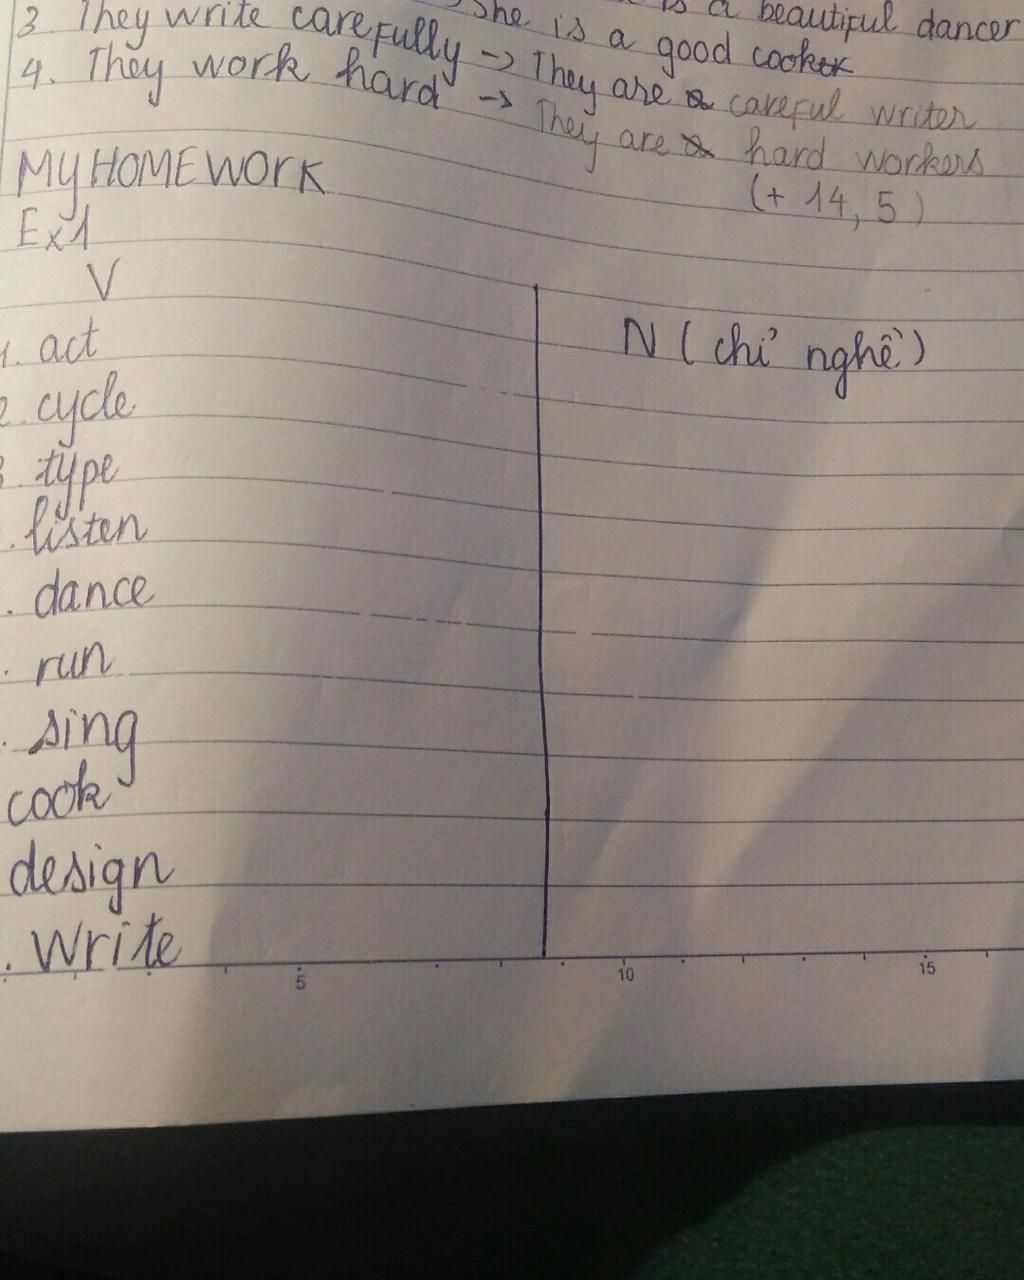 is a beautiful dancer
She is a good cook
3. They write carefully -> They are careful writer
4. They work hard -> They are hard workers
(+ 14, 5)
MY HOMEWORK
Ex1
V
N (chỉ nghề)
1. act
2. cycle
3. type
. listen
. dance
. run
. sing
cook
design
. Write
5 10 15